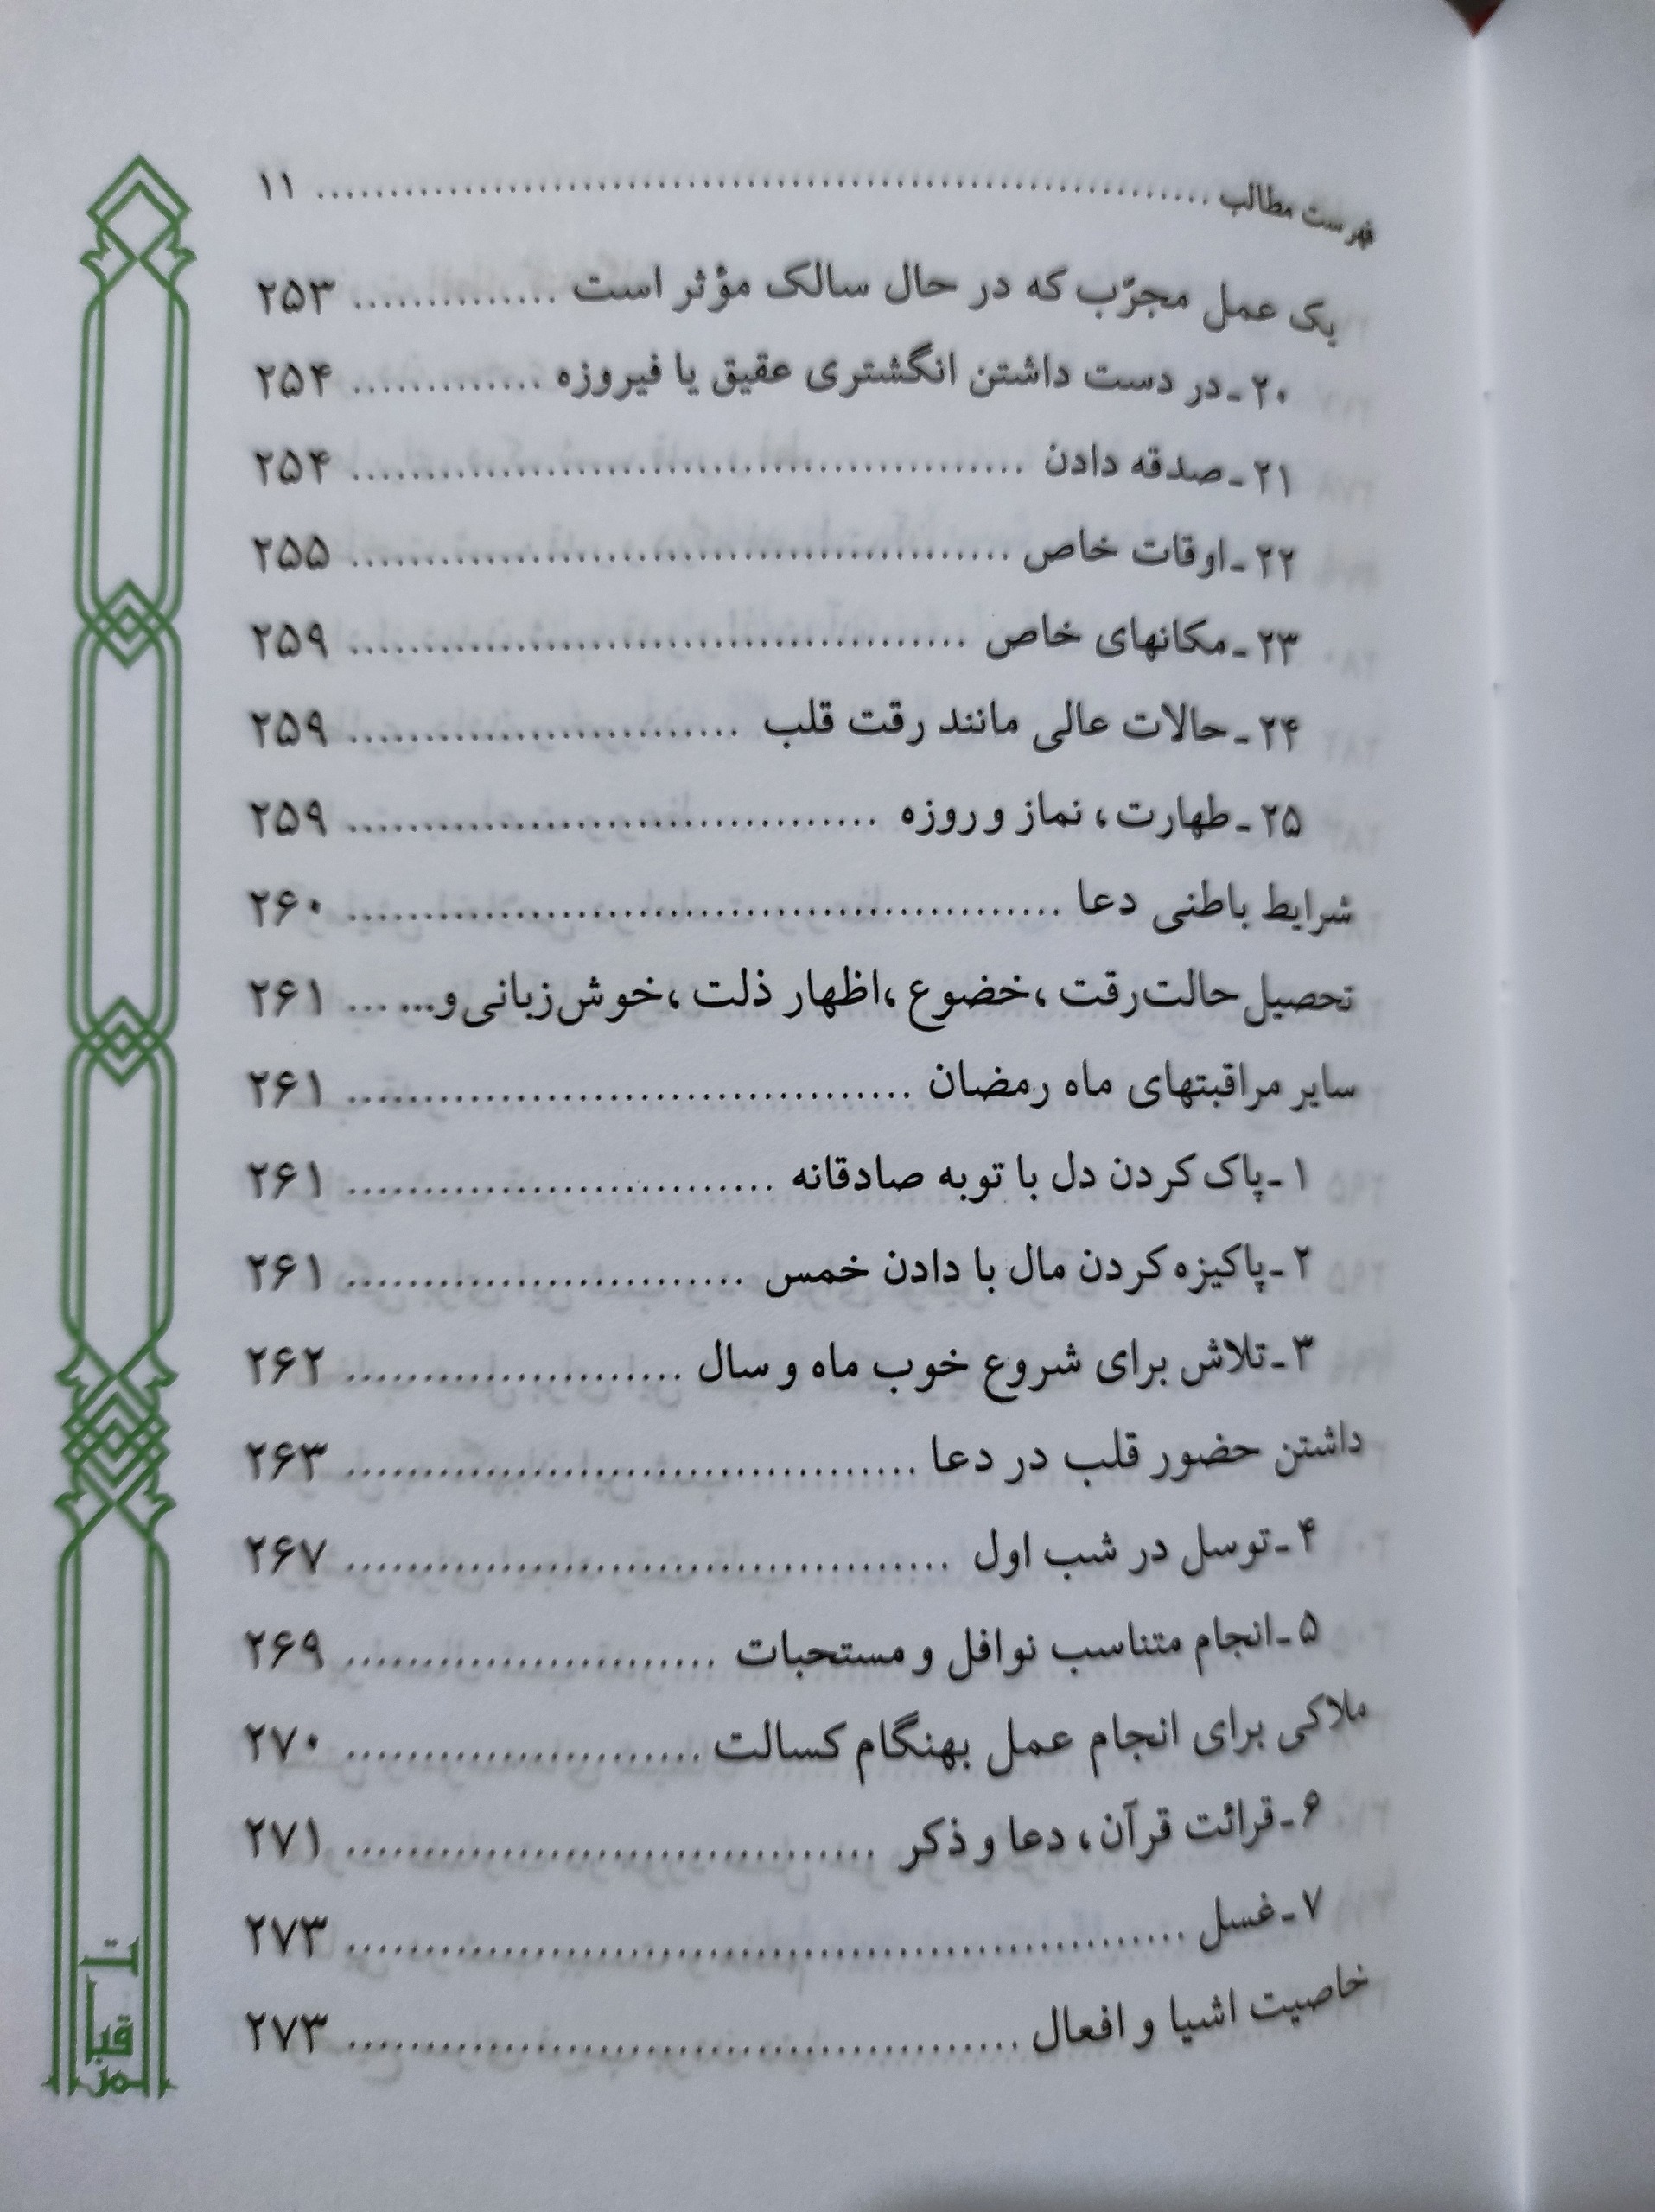 فهرست مطالب ........................................ ۱۱
یک عمل مجرّب که در حال سالک مؤثر است .............. ۲۵۳
۲۰ـ در دست داشتن انگشتری عقیق یا فیروزه ............. ۲۵۴
۲۱ـ صدقه دادن ........................................ ۲۵۴
۲۲ـ اوقات خاص ........................................ ۲۵۵
۲۳ـ مکانهای خاص ........................................ ۲۵۹
۲۴ـ حالات عالی مانند رقت قلب .......................... ۲۵۹
۲۵ـ طهارت، نماز و روزه ................................... ۲۵۹
شرایط باطنی دعا ........................................ ۲۶۰
تحصیل حالت رقت ،خضوع ،اظهار ذلت ،خوش‌زبانی و... ... ۲۶۱
سایر مراقبتهای ماه رمضان ..................................... ۲۶۱
۱ـ پاک کردن دل با توبه صادقانه ............................ ۲۶۱
۲ـ پاکیزه کردن مال با دادن خمس .......................... ۲۶۱
۳ـ تلاش برای شروع خوب ماه و سال ...................... ۲۶۲
داشتن حضور قلب در دعا ...................................... ۲۶۳
۴ـ توسل در شب اول ........................................ ۲۶۷
۵ـ انجام متناسب نوافل و مستحبات ........................ ۲۶۹
ملاکی برای انجام عمل بهنگام کسالت ....................... ۲۷۰
۶ـ قرائت قرآن، دعا و ذکر ................................... ۲۷۱
۷ـ غسل ........................................ ۲۷۳
خاصیت اشیا و افعال ........................................ ۲۷۳